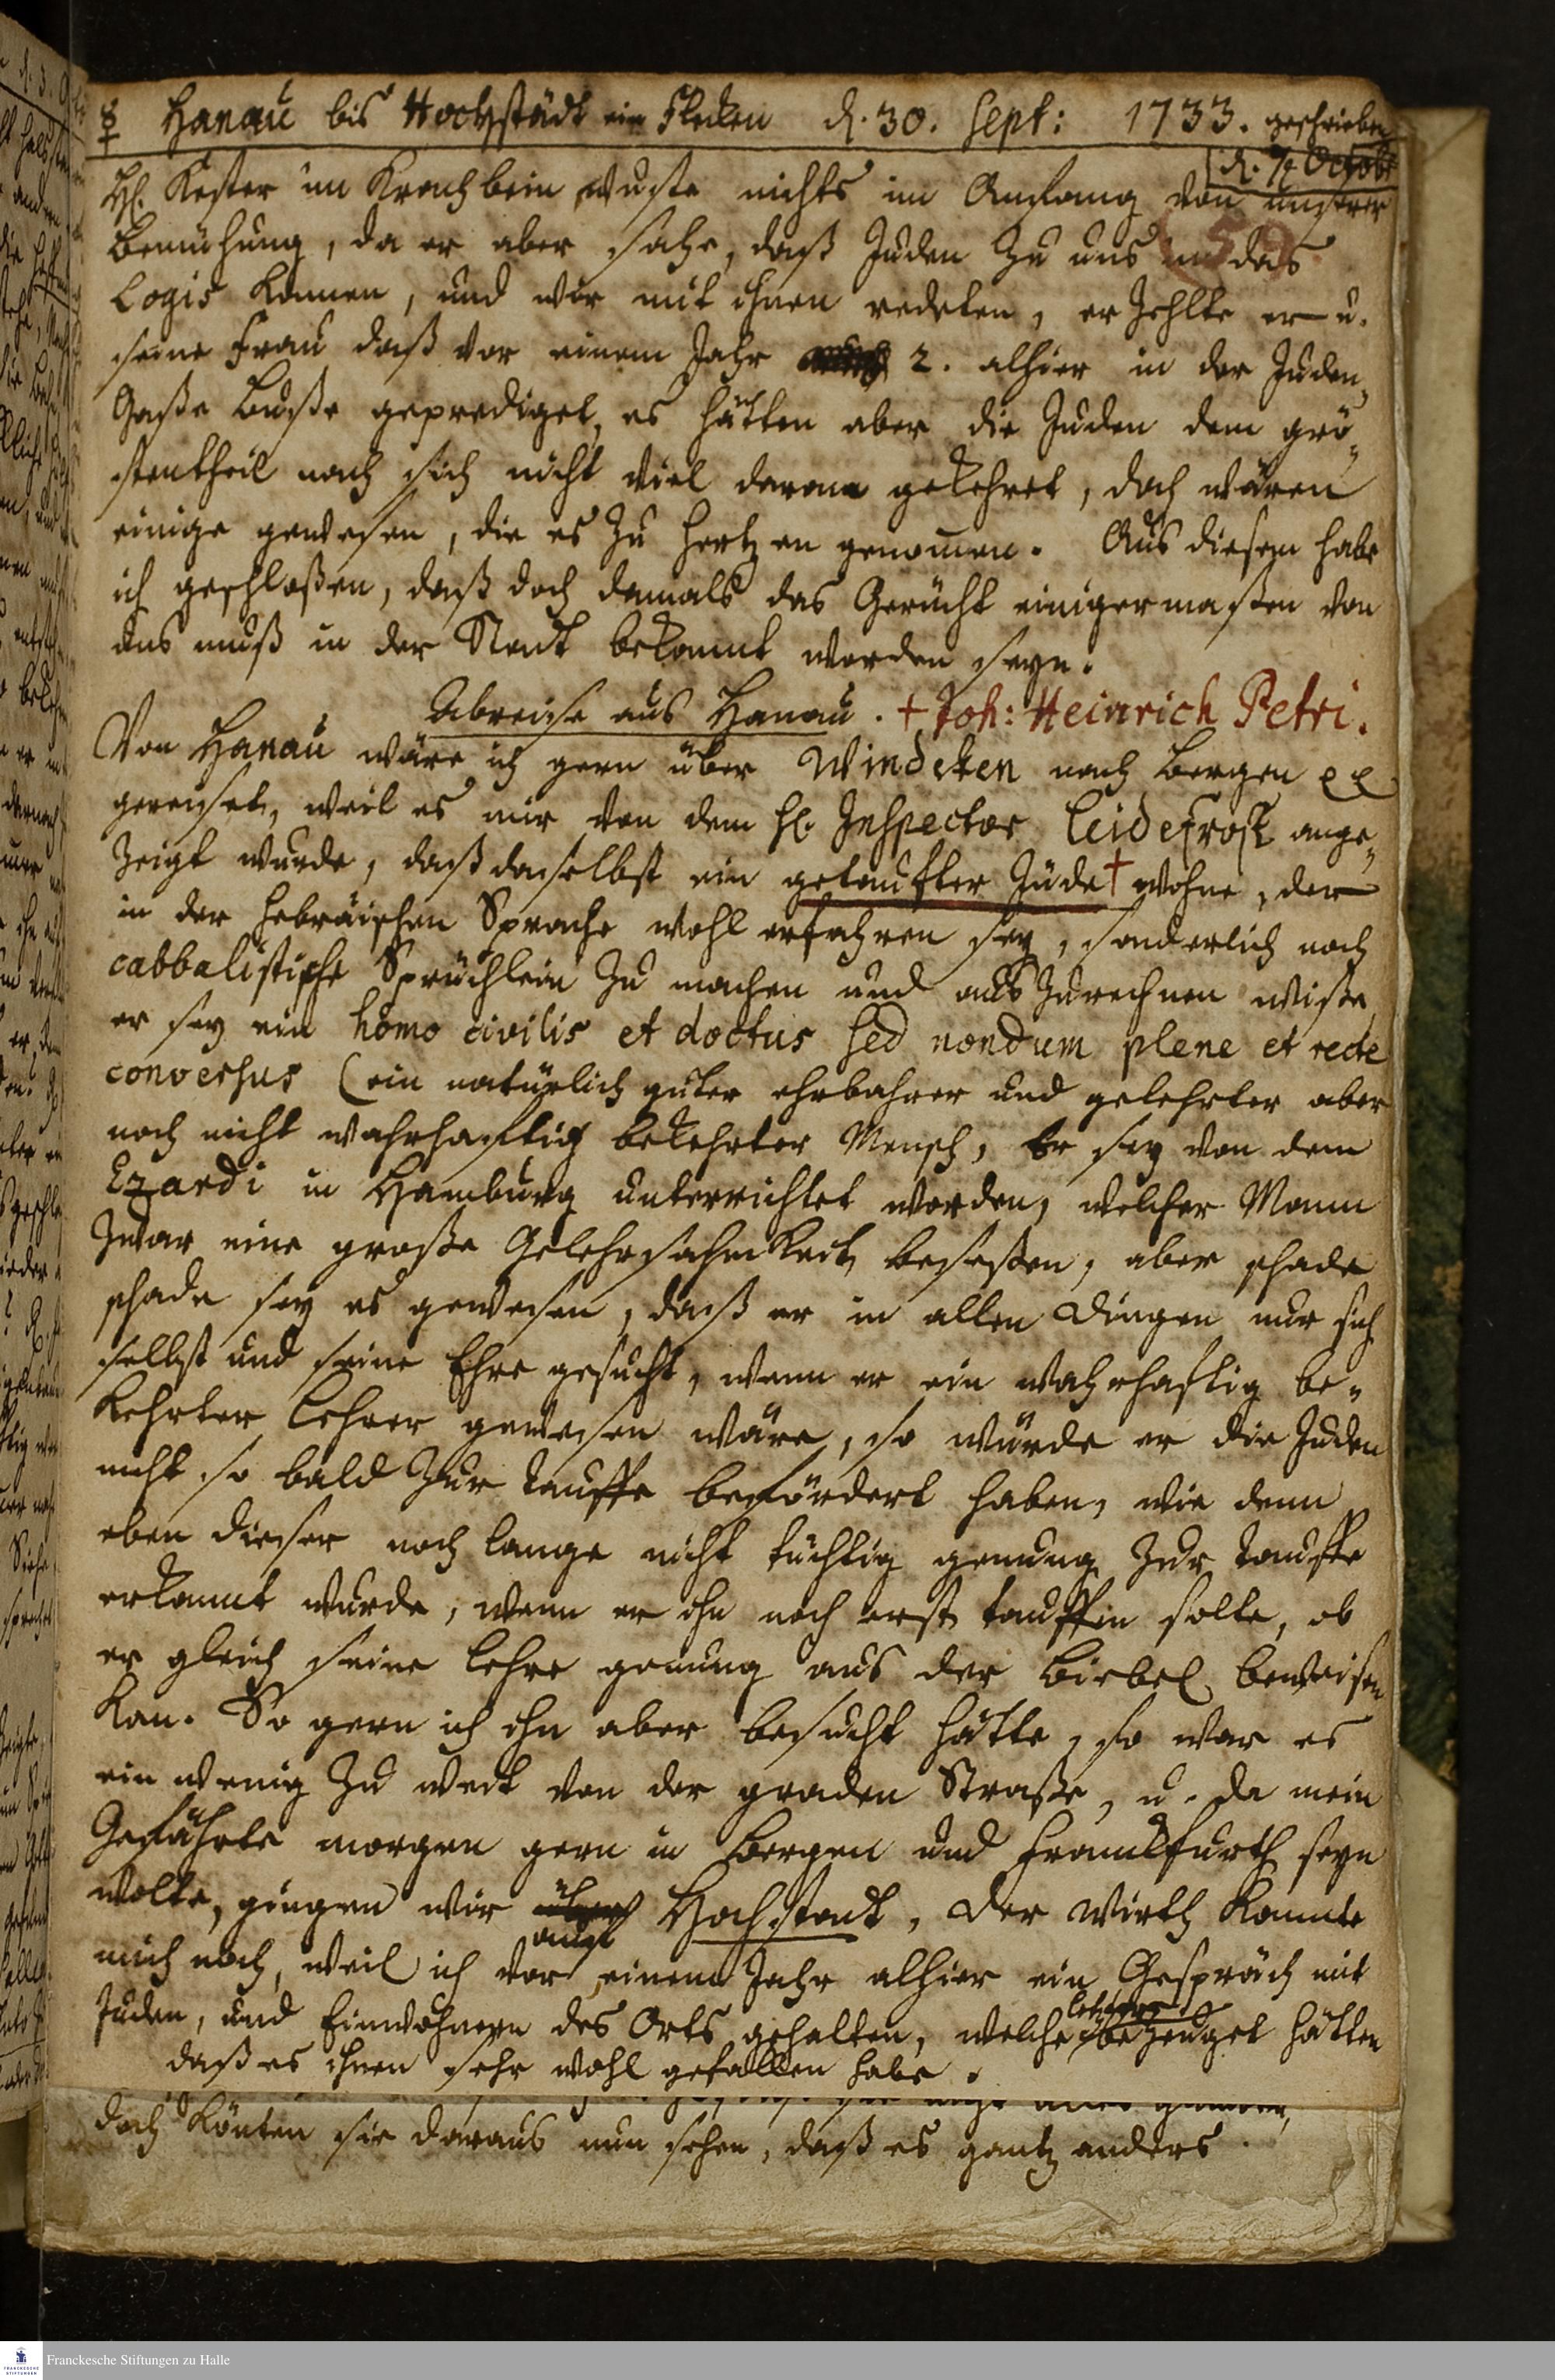 ☿ Hanau bis Hochstädt ein Flecken d. 30. Sept: 1733. geschrieben
d. 7 Octobr
H. Kester im Krachbein wuste nichts im Anfang von unserer
Bemühung, da er aber sahe, daß Juden zu uns in das
Logis kamen, und wir mit ihnen redeten, erzehlte er u.
seine Frau daß vor einem Jahr 2. alhier in der Juden
Gaße Buße geprediget, es hätten aber die Juden dem grö-
stentheil nach sich nicht viel daran gekehret, doch wären
einige gewesen, die es zu Hertzen genommen. Aus diesem habe
ich geschloßen, daß doch damals das Gerücht einigermaßen von
uns muß in der Stadt bekannt worden seyn.
Abreise aus Hanau. + Joh: Heinrich Petri.
Von Hanau wäre ich gern über Windeken nach Bergen
gereiset, weil es mir von dem H. Inspector Leidefrost ange-
zeigt wurde, daß daselbst ein getaufter Jüde + wohne, der
in der Hebräischen Sprache wohl erfahren sey, sonderlich noch
cabbalistische Sprüchlein zu machen und auszurechnen wiße
er sey ein homo civilis et doctus sed nondum plene et recte
conversus (ein natürlich guter ehrbahrer und gelehrter aber
noch nicht wahrhafftig bekehrter Mensch, Er sey von dem
Ezardi in Hamburg unterrichtet worden, welcher Mann
zwar eine große Gelehrsahmkeit beseßen, aber schade
schade sey es gewesen, daß er in allen Dingen nur sich
selbst und seine Ehre gesucht, wenn er ein wahrhafftig be-
kehrter Lehrer gewesen wäre, so würde er die Juden
nicht so bald zur Tauffe befördert haben, wie denn
eben dieser noch lange nicht tüchtig genung zur Tauffe
erkannt wurde, wenn er ihn noch erst tauffen solte, ob
er gleich seine Lehre genung aus der Biebel beweisen
kan. So gern ich ihn aber besucht hätte, so war es
ein wenig zu weit von der graden Straße, u. da mein
Gefährte morgen gern in Bergen und Franckfurth seyn
wolte, gingen wir auf Hochstadt, der Wirth kannte
mich noch, weil ich vor einem Jahr alhier ein Gespräch mit
Juden, und Einwohnern des Orts gehalten, welche letztere bezeuget hätten
daß es ihnen sehr wohl gefallen habe.
doch könten sie daraus nun sehen, daß es gantz anders
Franckesche Stiftungen zu Halle